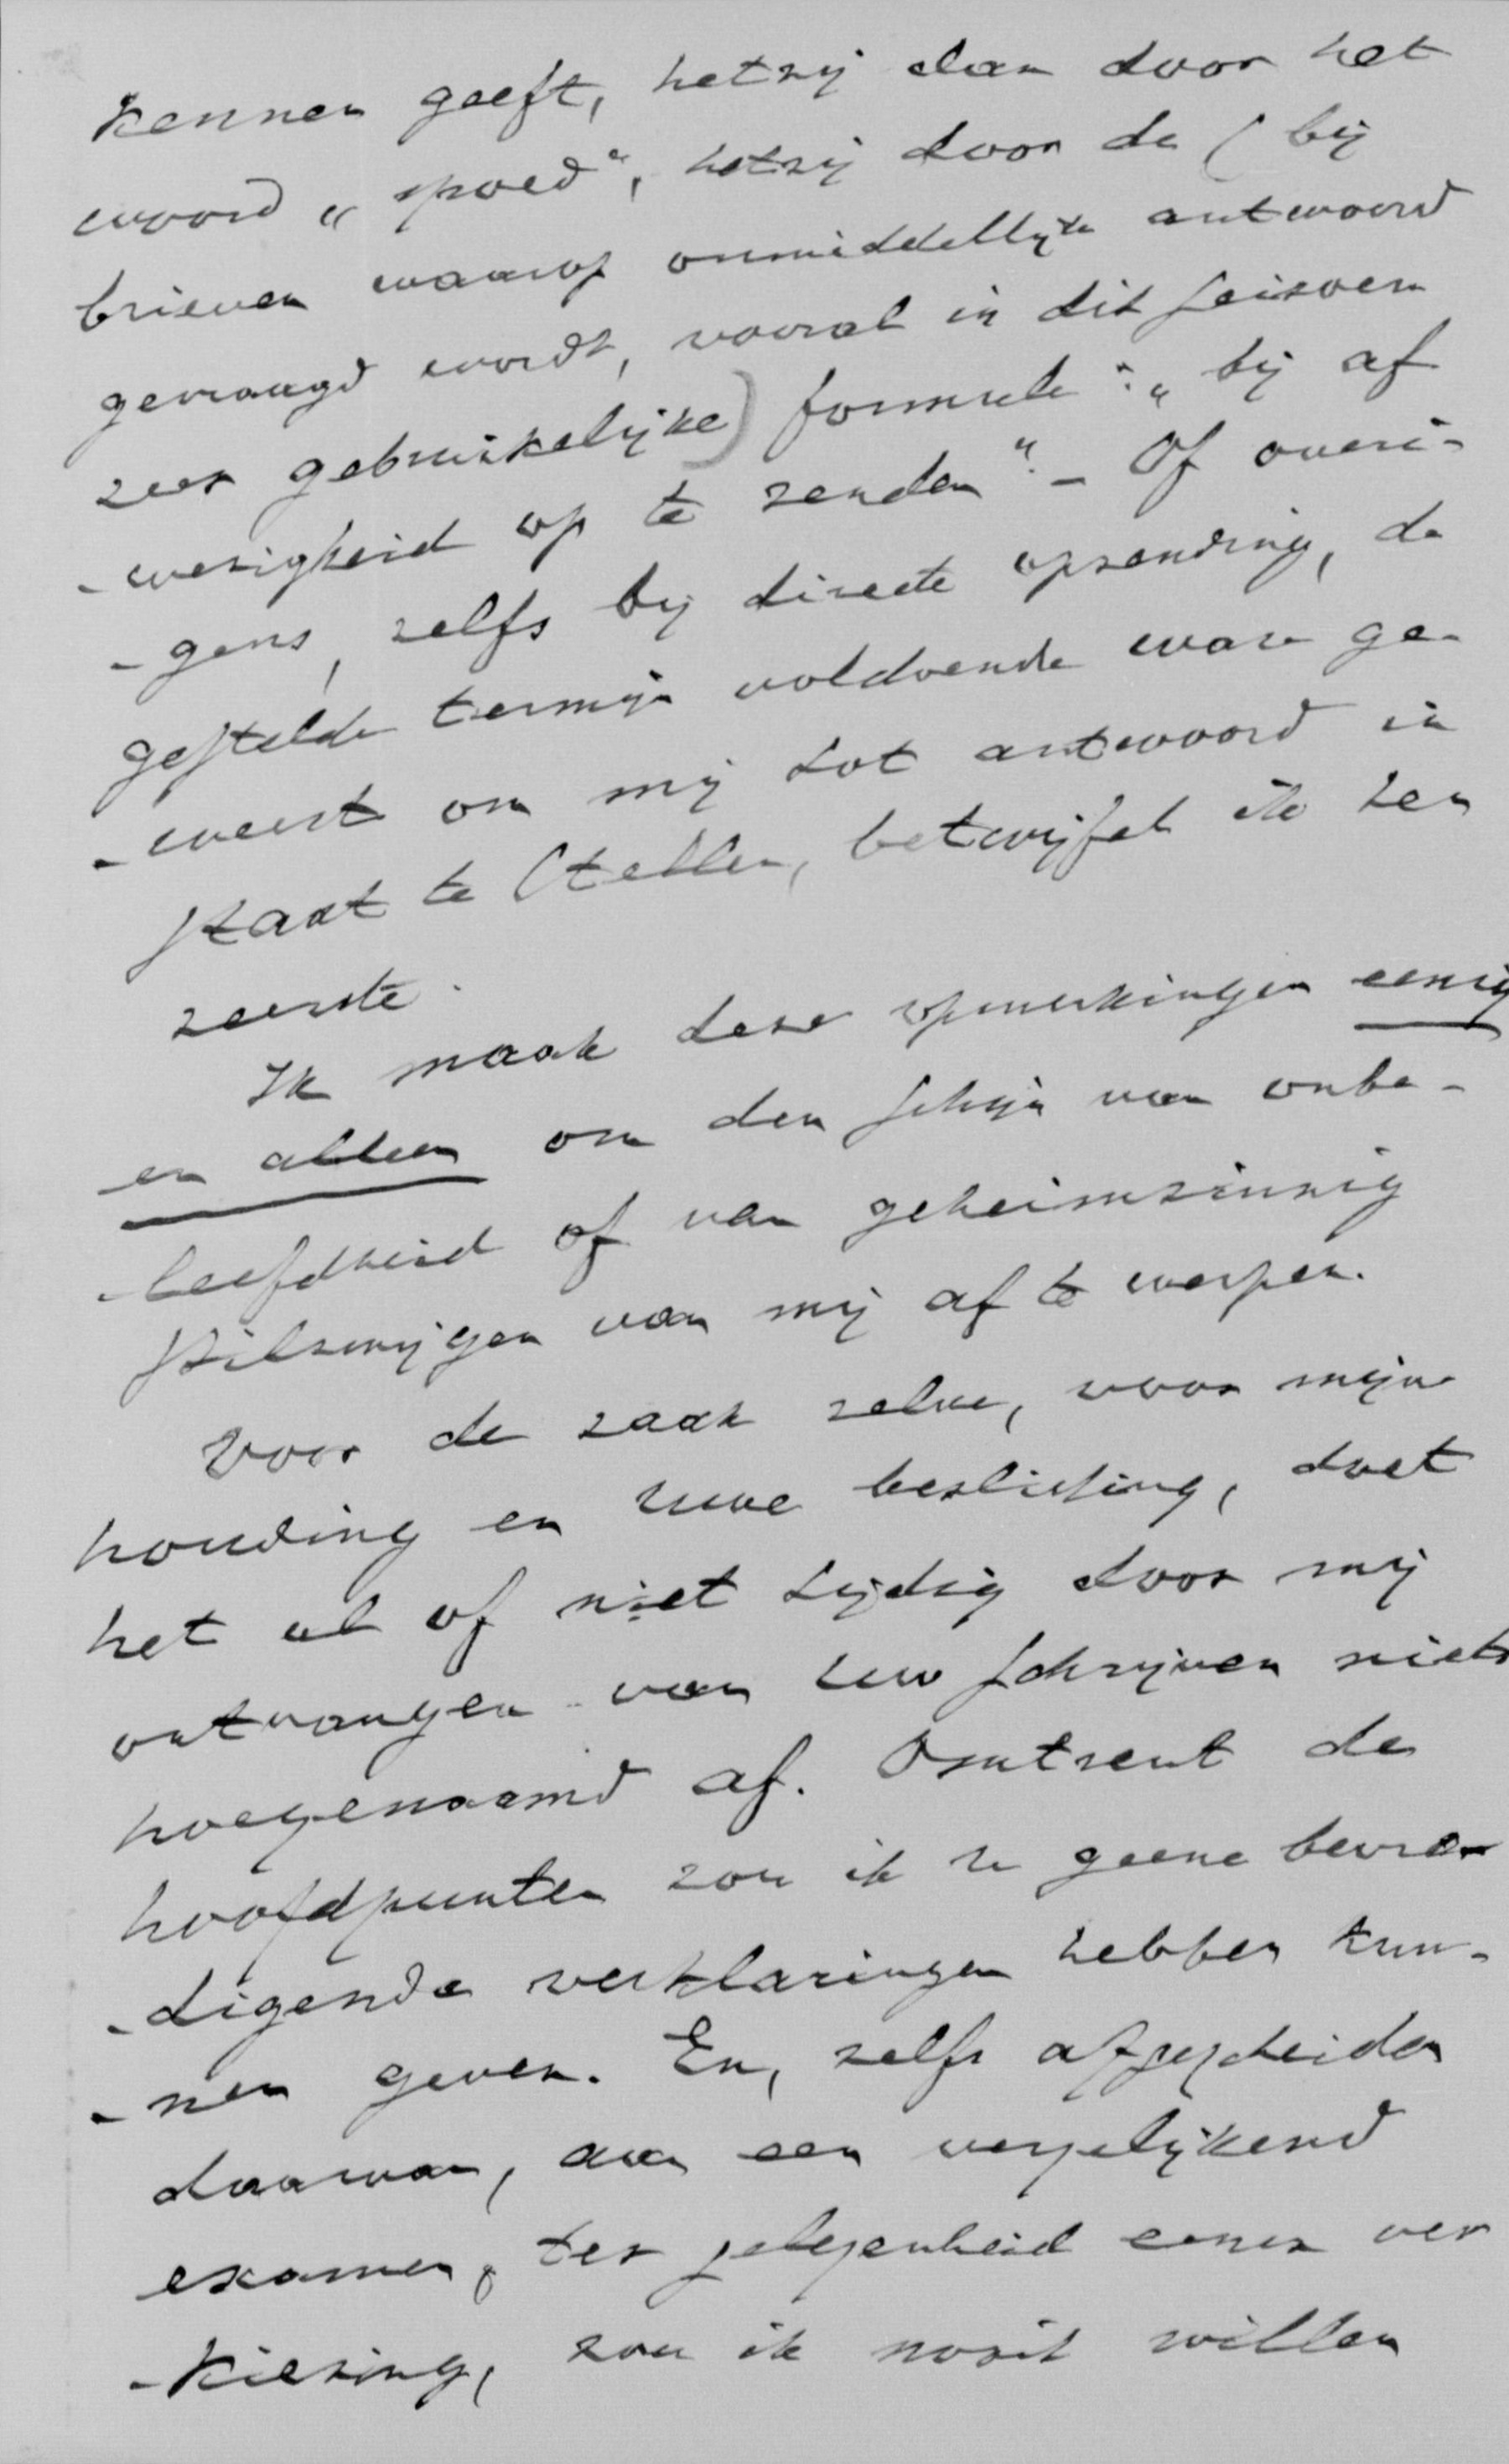 kennen geeft, hetzij dan door het
woord „spoed", hetzij door de (bij
brieven waarop onmiddellijk antwoord
gevraagd wordt, vooral in dit seizoen
zeer gebruikelijke) formule: „bij af
-wezigheid op te zenden". – Of overi-
-gens, zelfs bij directe opzending, de
gestelde termijn voldoende ware ge-
-weest om mij tot antwoord in
staat te stellen, betwijfel ik ten
zeerste.
Ik maak deze opmerkingen eenig
en alleen om den schijn van onbe-
-leefdheid of van geheimzinnig
stilzwijgen van mij af te werpen.
Voor de zaak zelve, voor mijne
houding en uwe beslissing, doet
het al of niet tijdig door mij
ontvangen van uw schrijven niets
hoegenaamd af. Omtrent de
hoofdpunten zou ik u geene bevre-
-digende verklaringen hebben kun-
-nen geven. En, zelfs afgescheiden
daarvan, aan een vergelijkend
examen, ter gelegenheid eener ver
-kiezing, zou ik nooit willen